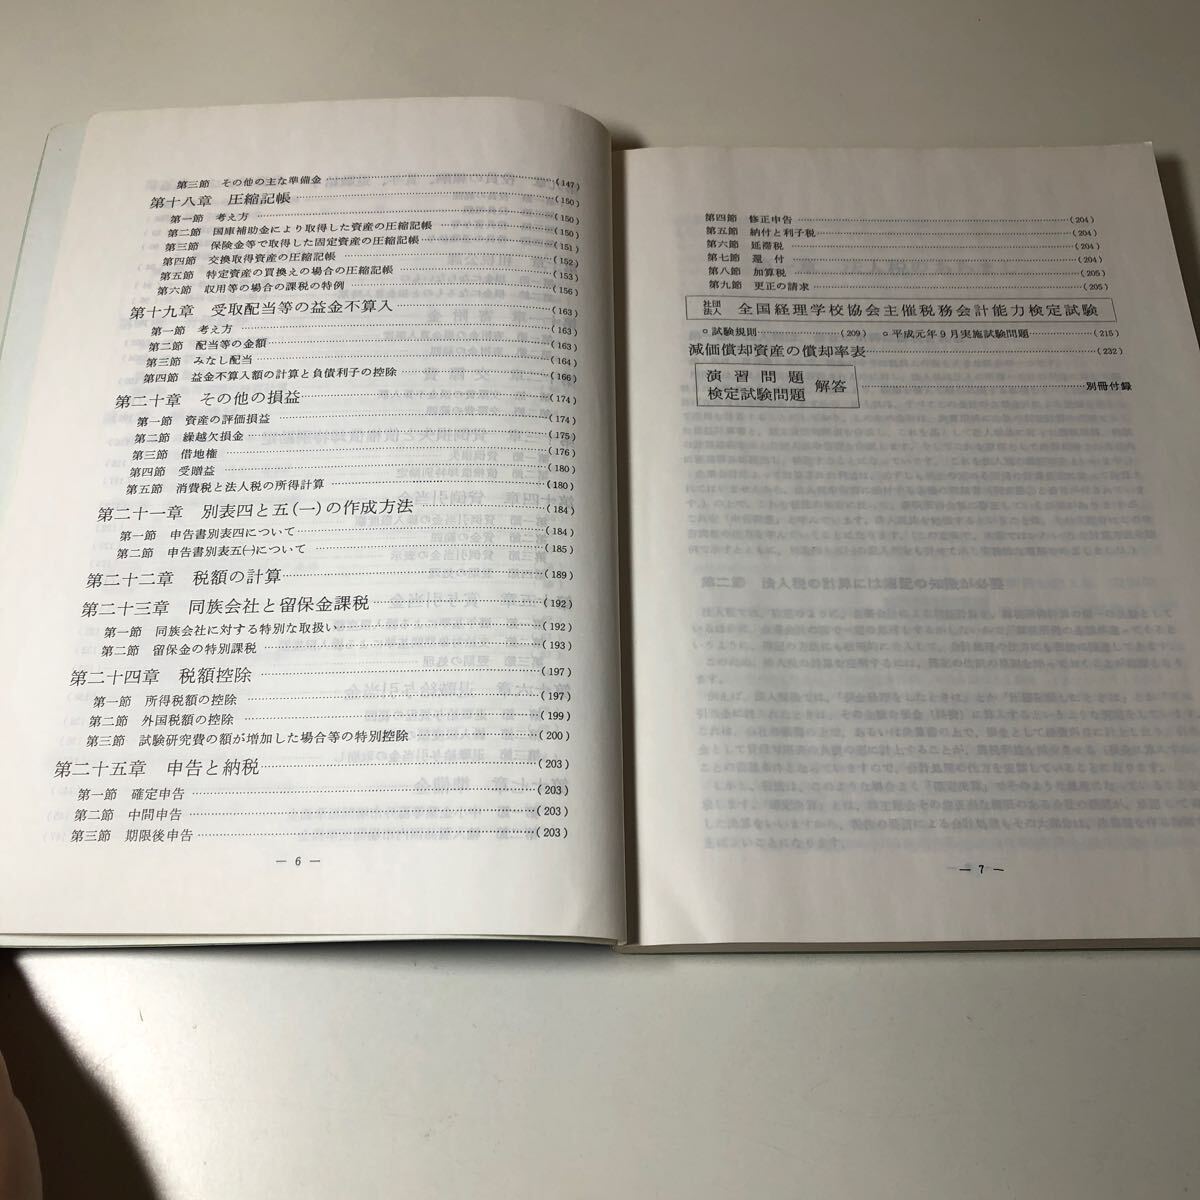 第三節 その他の主な準備金……(147)
第十八章 圧縮記帳……(150)
第一節 考え方……(150)
第二節 国庫補助金により取得した資産の圧縮記帳……(150)
第三節 保険金等で取得した固定資産の圧縮記帳……(151)
第四節 交換取得資産の圧縮記帳……(152)
第五節 特定資産の買換えの場合の圧縮記帳……(153)
第六節 収用等の場合の課税の特例……(156)
第十九章 受取配当等の益金不算入……(163)
第一節 考え方……(163)
第二節 配当等の金額……(163)
第三節 みなし配当……(164)
第四節 益金不算入額の計算と負債利子の控除……(166)
第二十章 その他の損益……(174)
第一節 資産の評価損益……(174)
第二節 繰越欠損金……(175)
第三節 借地権……(176)
第四節 受贈益……(180)
第五節 消費税と法人税の所得計算……(180)
第二十一章 別表四と五(一)の作成方法……(184)
第一節 申告書別表四について……(184)
第二節 申告書別表五(一)について……(185)
第二十二章 税額の計算……(189)
第二十三章 同族会社と留保金課税……(192)
第一節 同族会社に対する特別な取扱い……(192)
第二節 留保金の特別課税……(193)
第二十四章 税額控除……(197)
第一節 所得税額の控除……(197)
第二節 外国税額の控除……(199)
第三節 試験研究費の額が増加した場合等の特別控除……(200)
第二十五章 申告と納税……(203)
第一節 確定申告……(203)
第二節 中間申告……(203)
第三節 期限後申告……(203)
— 6 —
第四節 修正申告……(204)
第五節 納付と利子税……(204)
第六節 延滞税……(204)
第七節 還付……(204)
第八節 加算税……(205)
第九節 更正の請求……(205)
社団法人 全国経理学校協会主催税務会計能力検定試験
○試験規則……(209) ○平成元年9月実施試験問題……(215)
減価償却資産の償却率表……(232)
演習問題
検定試験問題 解答……別冊付録
— 7 —